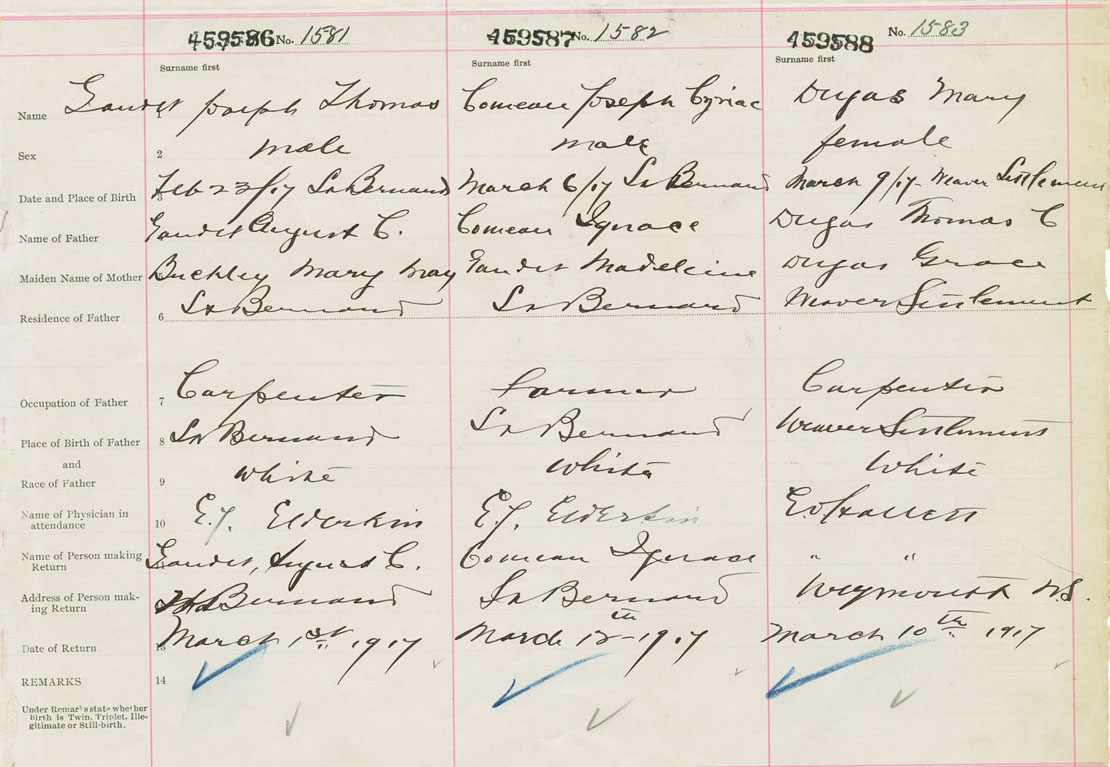 459586 No. 1581 459587 No. 1582 459588 No. 1583
Surname first Surname first Surname first
Name Gaudet Joseph Thomas Comeau Joseph Cyriac Dugas Mary
Sex 2 male male female
Date and Place of Birth 3 Feb 23/17 St Bernard March 6/17 St Bernard March 9/17 - Weaver Settlement
Name of Father Gaudet August C. Comeau Ignace Dugas Thomas C
Maiden Name of Mother Buckley Mary May Gaudet Madeleine Dugas Grace
Residence of Father 6 St Bernard St Bernard Weaver Settlement
Occupation of Father 7 Carpenter Farmer Carpenter
Place of Birth of Father 8 St Bernard St Bernard Weaver Settlement
and
Race of Father 9 White White White
Name of Physician in
attendance 10 E.J. Elderkin E.J. Elderkin E. Hallett
Name of Person making
Return Gaudet, August C. Comeau Ignace " "
Address of Person mak-
ing Return St Bernard St Bernard Weymouth N.S.
Date of Return 13 March 1st 1917 March 12th 1917 March 10th 1917
REMARKS 14
Under Remarks state whether
Birth is Twin, Triplet, Ille-
gitimate or Still-birth.